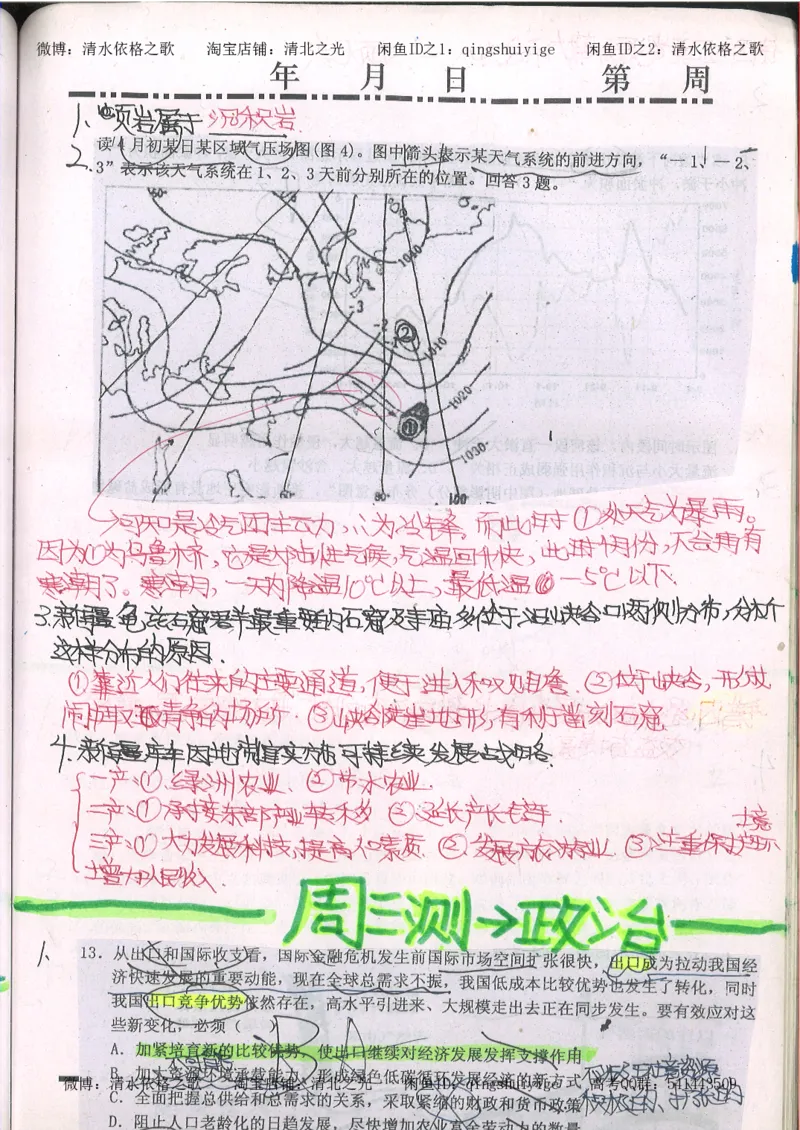 微博：清水依格之歌 淘宝店铺：清北之光 闲鱼ID之1：qingshuiyige 闲鱼ID之2：清水依格之歌
年 月 日 第 周
1. 页岩属于沉积岩
2. 读4月初某日某区域气压场图(图4)。图中箭头表示某天气系统的前进方向，“—1、—2、
-3”表示该天气系统在1、2、3天前分别所在的位置。回答3题。
1040
-3
-2
②
1010
1020
①
1030
60°
80°
100°
因为①为乌鲁木齐，它是大陆性气候，气温回升快，此时4月份，不会再有
寒潮了。寒潮，一天内降温10℃以上，最低温 -5℃以下.
3.新疆龟兹石窟群最重要的石窟及寺庙，多位于沿山峡谷口两侧分布，分析
这样分布的原因.
①靠近人们往来的主要通道，便于进入和 ②位于峡谷，形成
闹中取静的场所. ③山峡谷 地形，有利于凿刻石窟
4.新疆 因地制宜实施可持续发展战略
一产：①绿洲农业. ②节水农业.
二产：①承接东部产业转移 ②延长产业链.
三产：①大力发展科技，提高人口素质 ②发展旅游业. ③注重保护环境
增加人民收入.
周三测→政治
1. 13．从出口和国际收支看，国际金融危机发生前国际市场空间扩张很快，出口成为拉动我国经
济快速发展的重要动能，现在全球总需求不振，我国低成本比较优势也发生了转化，同时
我国出口竞争优势依然存在，高水平引进来、大规模走出去正在同步发生。要有效应对这
些新变化，必须（ ）
A．加紧培育新的比较优势，使出口继续对经济发展发挥支撑作用
B．加大资源环境承载能力，形成绿色低碳循环发展经济的新方式
微博：清水依格之歌 淘宝店铺：清北之光 闲鱼ID：qingshuiyige 高考QQ群：541443509
C．全面把握总供给和总需求的关系，采取紧缩的财政和货币政策
D．阻止人口老龄化的日趋发展，尽快增加农业富余劳动力的数量